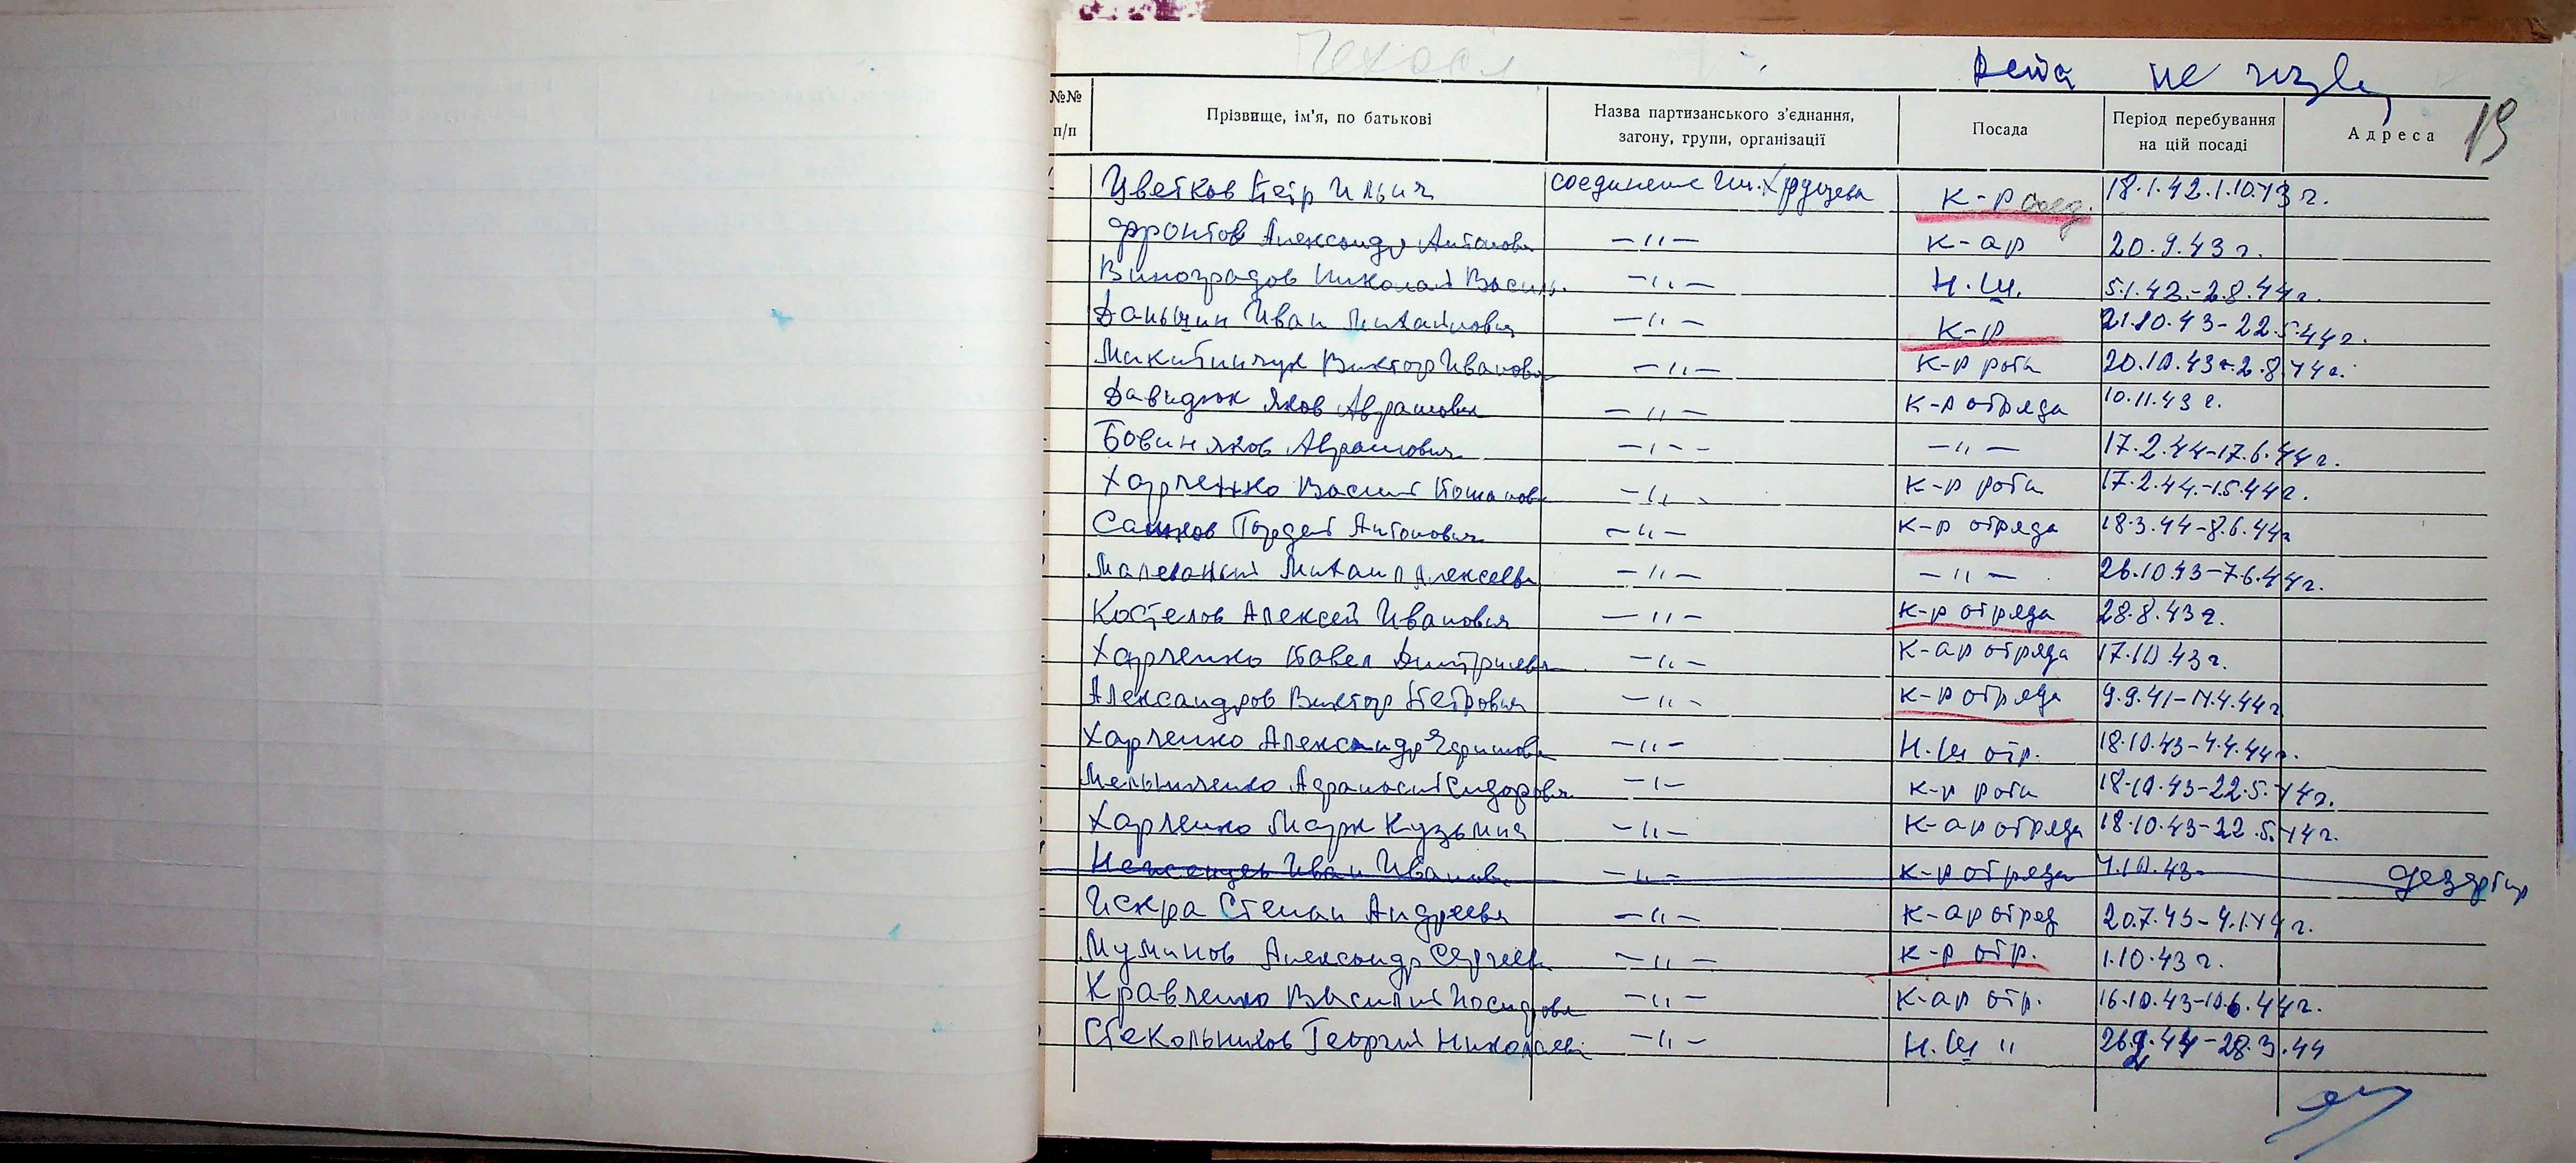 не
19
№№ п/п Прізвище, ім'я, по батькові Назва партизанського з'єднання, загону, групи, організації Посада Період перебування на цій посаді Адреса
Цветков Петр Ильич соединение им. Хрущева к-р соед. 18.1.42.1.10.43 г.
Фронтов Александр Антонови -"- к-ар 20.9.43 г.
Виноградов Николай Василь. -"- Н.Ш. 5.1.42.-2.8.44 г.
Даньшин Иван Михайлович -"- к-р 21.10.43-22.5.44 г.
Виктор Иванович -"- к-р роти 20.10.43-2.8.44 г.
Давидюк Яков Абрамович -"- к-р отряда 10.11.43 г.
Бовин Яков Абрамович -"- -"- 17.2.44-17.6.44 г.
Харченко Василий -"- к-р роти 17.2.44.-1.5.44 г.
Гордей Антонович -"- к-р отряда 18.3.44-8.6.44 г
Малеваный Михаил Алексеевич -"- -"- 26.10.43-7.6.44 г.
Костелов Алексей Иванович -"- к-р отряда 28.8.43 г.
Харченко Павел Дмитриевич -"- к-ар отряда 17.10.43 г.
Александров Виктор Петрович -"- к-р отряда 9.9.41-14.4.44 г
Харченко Александр -"- Н.Ш отр. 18.10.43-4.4.44 г.
Мельниченко Афанасий Сидорович -"- к-р роти 18.10.43-22.5.44 г.
Харченко Марк Кузьмич -"- к-ар отряда 18.10.43-22.5.44 г.
Иван Иванови -"- к-р отряда 4.10.43- дезертир
Искра Степан Андреевич -"- к-ар отряд 20.7.43-4.1.44 г.
Муминов Александр Сергеев -"- к-р отр. 1.10.43 г.
Кравченко Василий -"- к-ар отр. 16.10.43-10.6.44 г.
Стекольников Георгий Николаеви -"- Н.Ш " 26.2.44-28.3.44